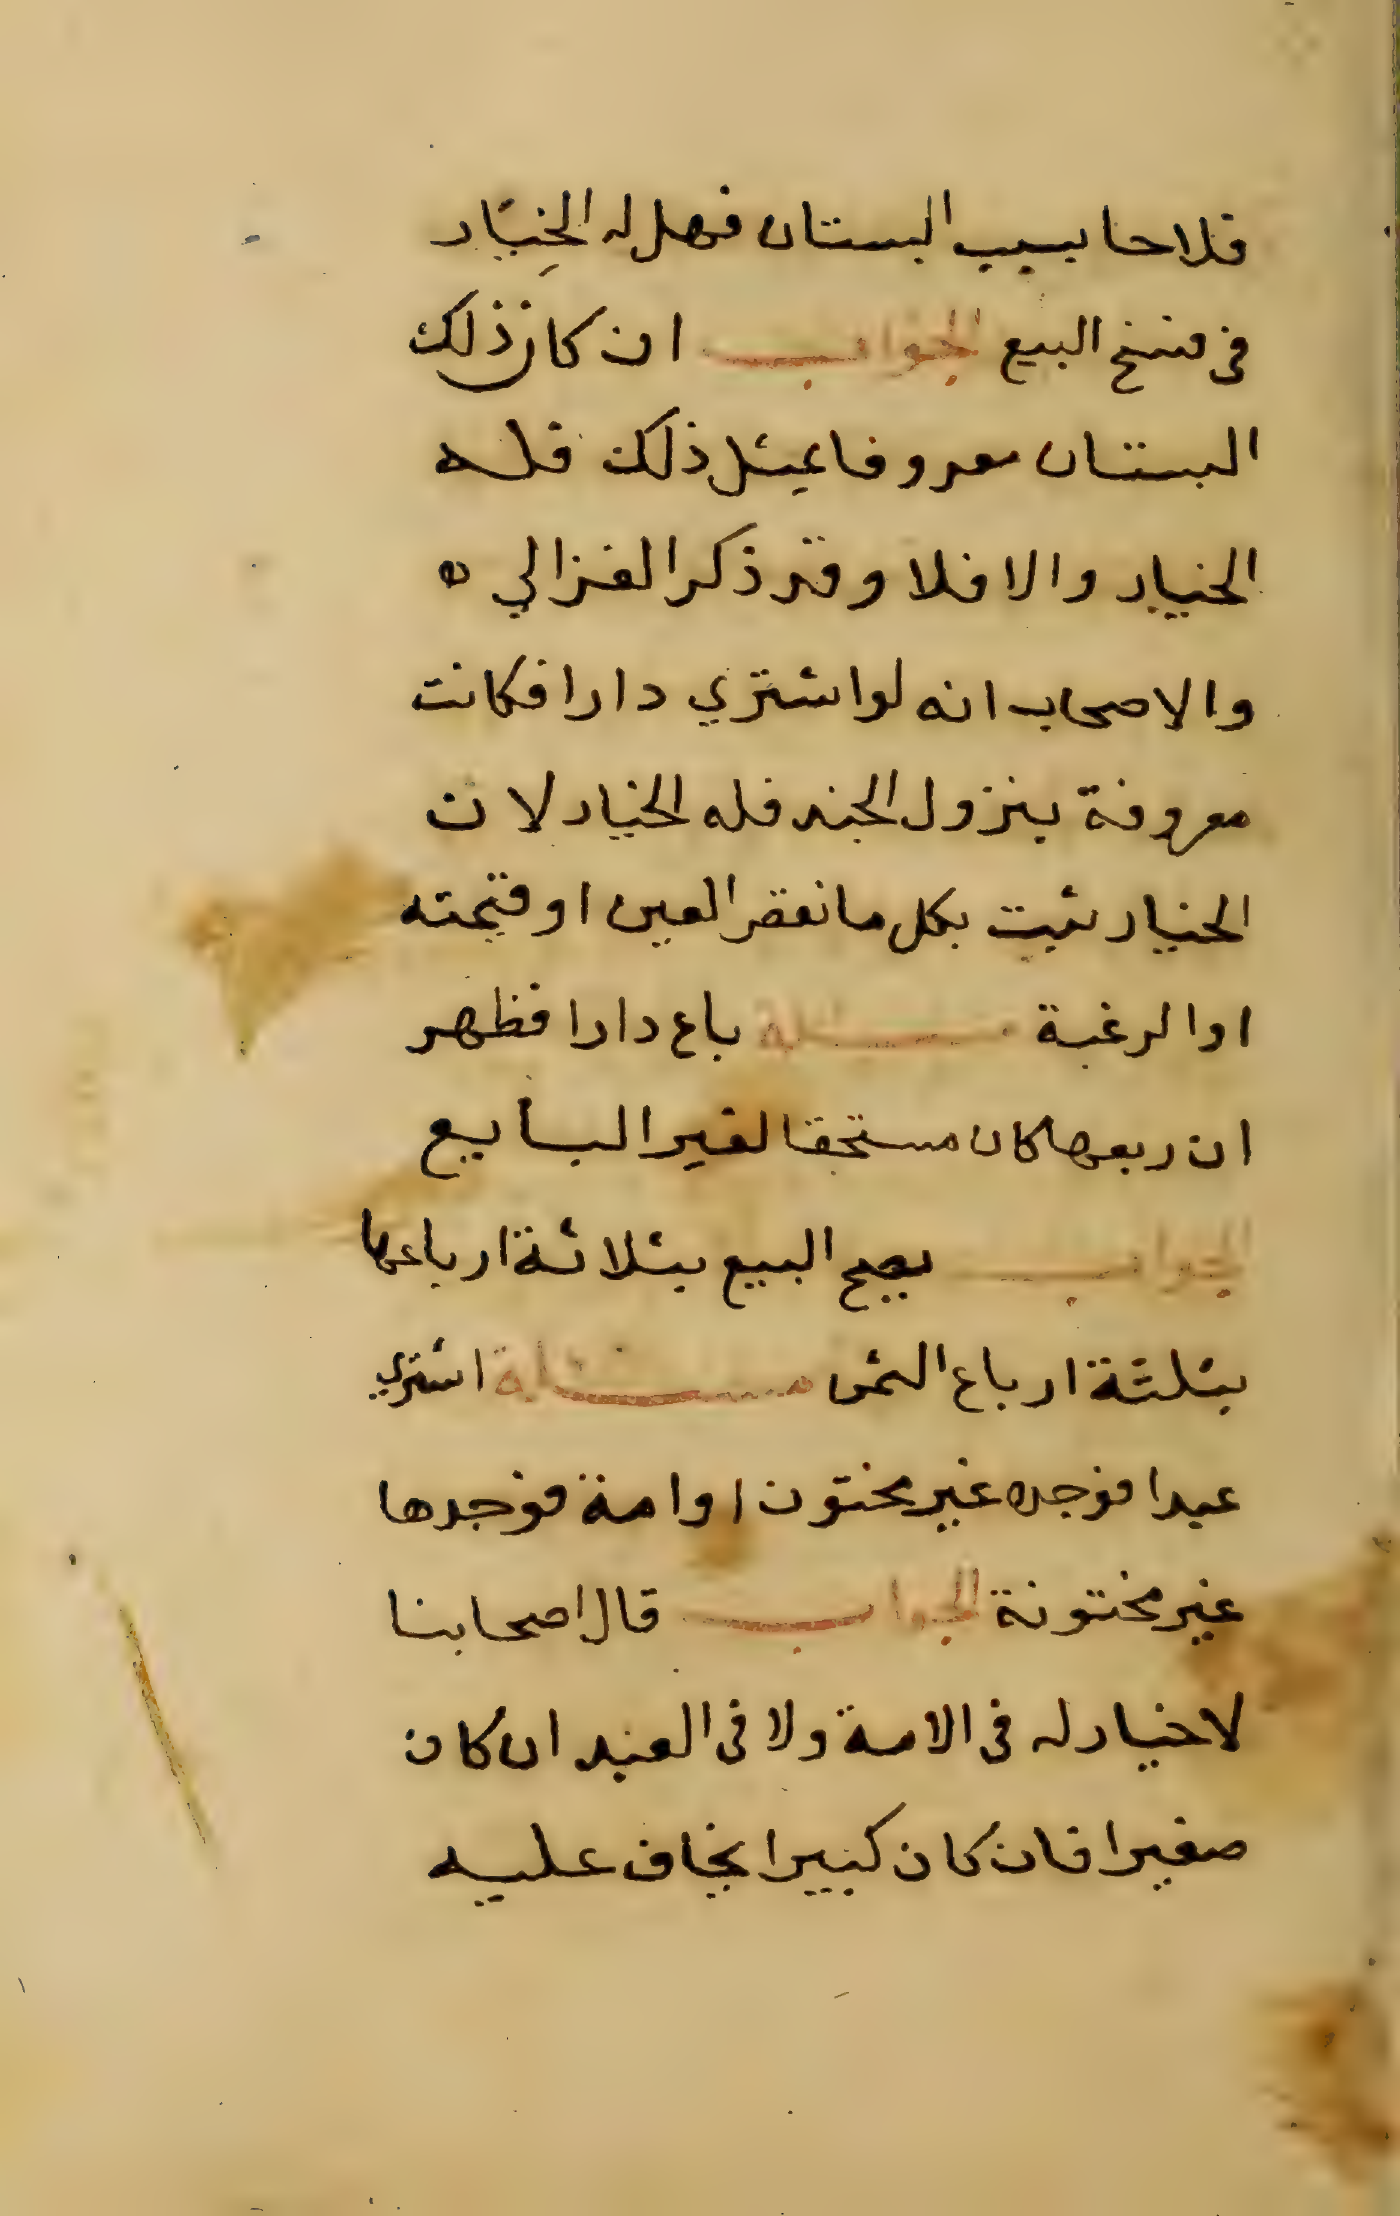 فلاحا بسبب البستان فهل له الخيار
في فسخ البيع الجواب ان كان ذلك
البستان معروفا بمثل ذلك فله
الخيار والا فلا وقد ذكر الغزالي ه
والاصحاب انه لو اشتري دارا فكانت
معروفة بنزول الجند فله الخيار لان
الخيار يثبت بكل ما نقص العين او قيمته
او الرغبة مسئلة باع دارا فظهر
ان ربعها كان مستحقا لغير البايع
الجواب يصح البيع بثلاثة ارباعها
بثلثة ارباع الثمن مسئلة اشتري
عبدا فوجده غير مختون او امة فوجدها
غير مختونة الجواب قال اصحابنا
لا خيار له في الامة ولا في العبد ان كان
صغيرا فان كان كبيرا يخاف عليه